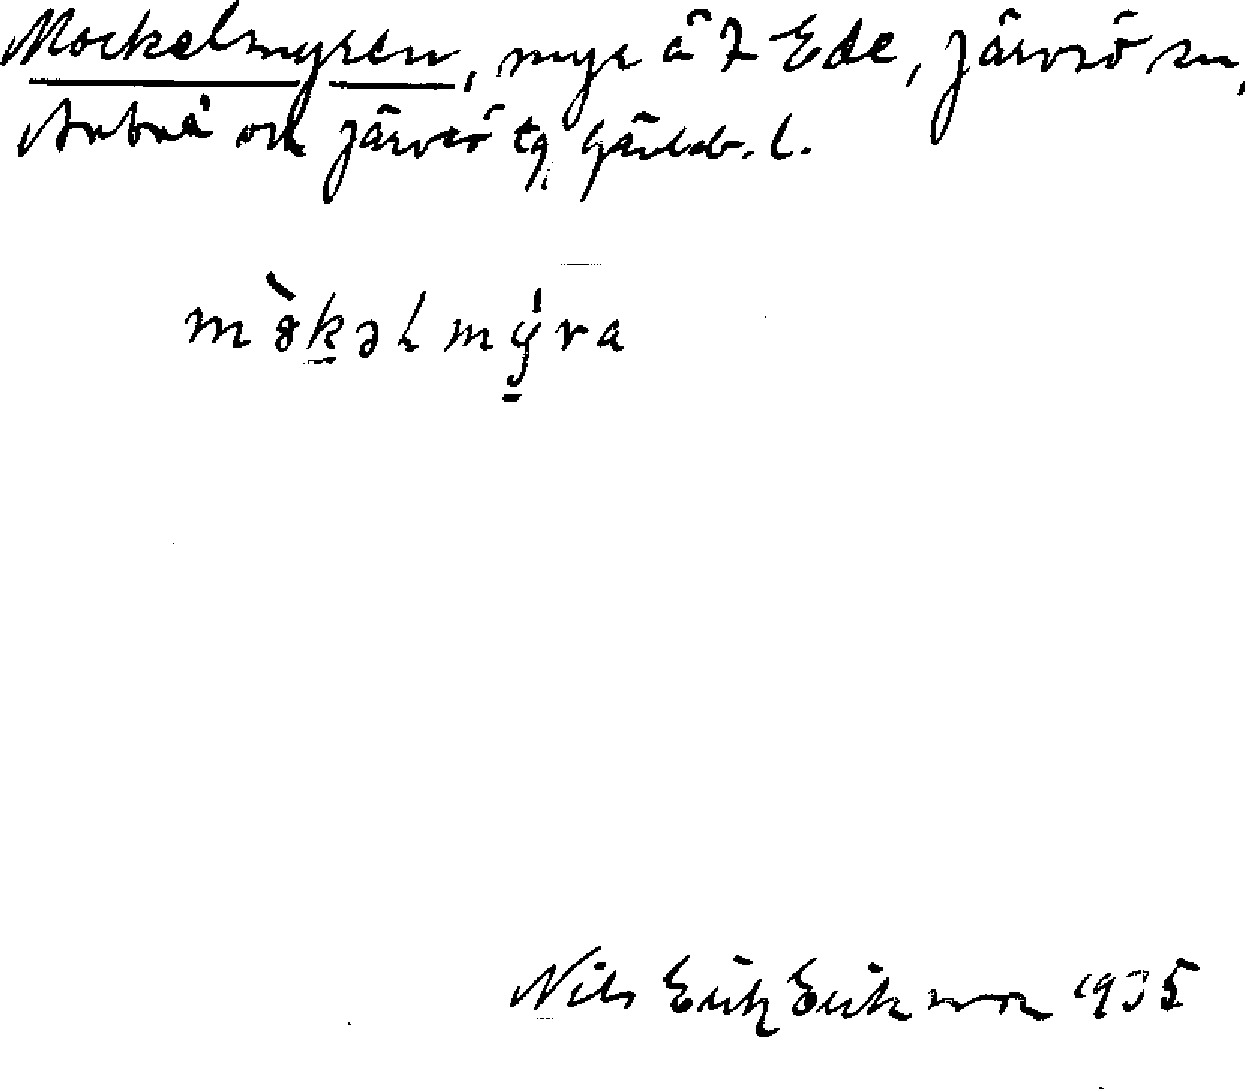 Mockelmyren, myr å I Ede, Järvsö sn,
Arbrå och Järvsö tg, Gävleb. l.
mòkəlmýra
Nils Erik Eriksson 1935